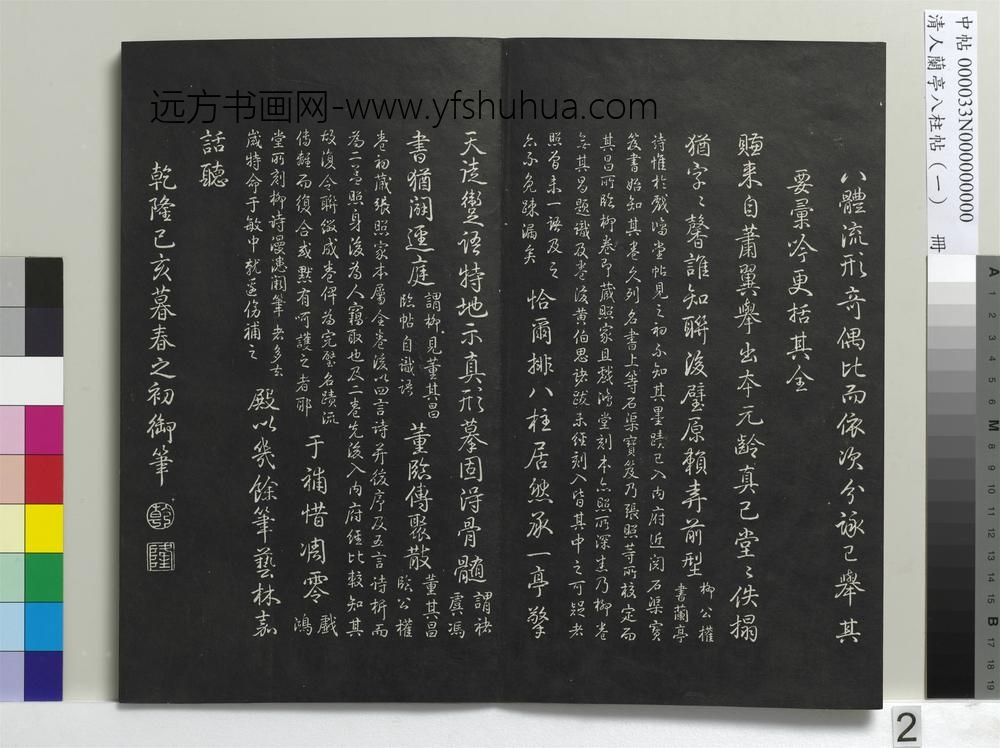 中帖 000033N000000000
清人蘭亭八柱帖(一) 冊
远方书画网-www.yfshuhua.com
八體流形奇偶比而依次分詠已舉其
要彙吟更括其全
賺来自蕭翼舉出本元齡真已堂〻佚搨
猶字〻馨誰知聯後璧原賴弆前型 柳公權書蘭亭
詩惟於戲鴻堂帖見之初不知其墨蹟已入内府近閲石渠寳
笈書始知其卷久列名書上等石渠寳笈乃張照等所校定而
其昌所臨柳卷亦藏照家且戲鴻堂刻本亦照所深悉乃柳卷
無其昌題識及卷後黄伯思諸跋未經刻入皆其中之可疑者
照曾未一語及之
亦不免疎漏矣 恰爾排八柱居然承一亭擎
天徒藉語特地示真形摹固得骨髓 謂褚虞馮
書猶闢逕庭 謂柳見董其昌臨帖自識語 董臨傳聚散 董其昌臨公權
卷初藏張照家本屬全卷後以四言詩并後序及五言詩析而
為二盖照身後為人竊取也及二卷先後入内府經比較知其
故復令聯綴成卷俾為完璧名蹟流
傳離而復合或默有呵護之者耶 于補惜凋零 戲鴻
堂所刻柳詩漫漶闕筆者多去
歲特命于敏中就邊傍補之 殿以幾餘筆藝林嘉
話聽
乾隆己亥暮春之初御筆
乾
隆
A 1 2 3 4 5 6 M 8 9 10 11 12 13 14 15 B 17 18 19
2